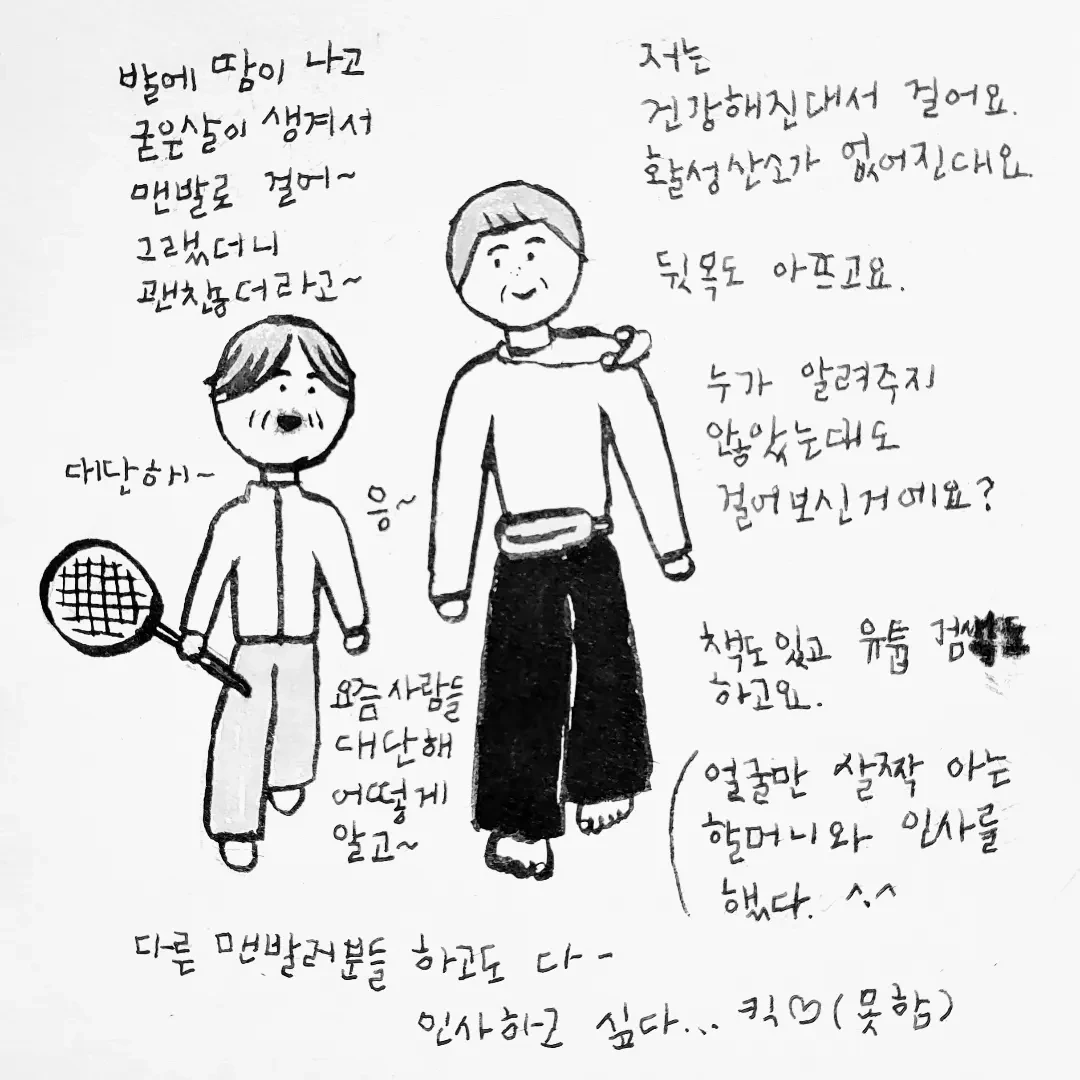 발에 땀이 나고
굳은살이 생겨서
맨발로 걸어~
그랬더니
괜찮더라고~
저는
건강해진대서 걸어요.
활성산소가 없어진대요.
뒷목도 아프고요.
누가 알려주지
않았는데도
걸어보신거에요?
대단하시~
응~
책도있고 유튭 검색도
하고요.
요즘사람들
대단해
어떻게
알고~
(얼굴만 살짝 아는
할머니와 인사를
했다. ^.^
다른 맨발러분들 하고도 다-
인사하고 싶다... 킥♡(못함)